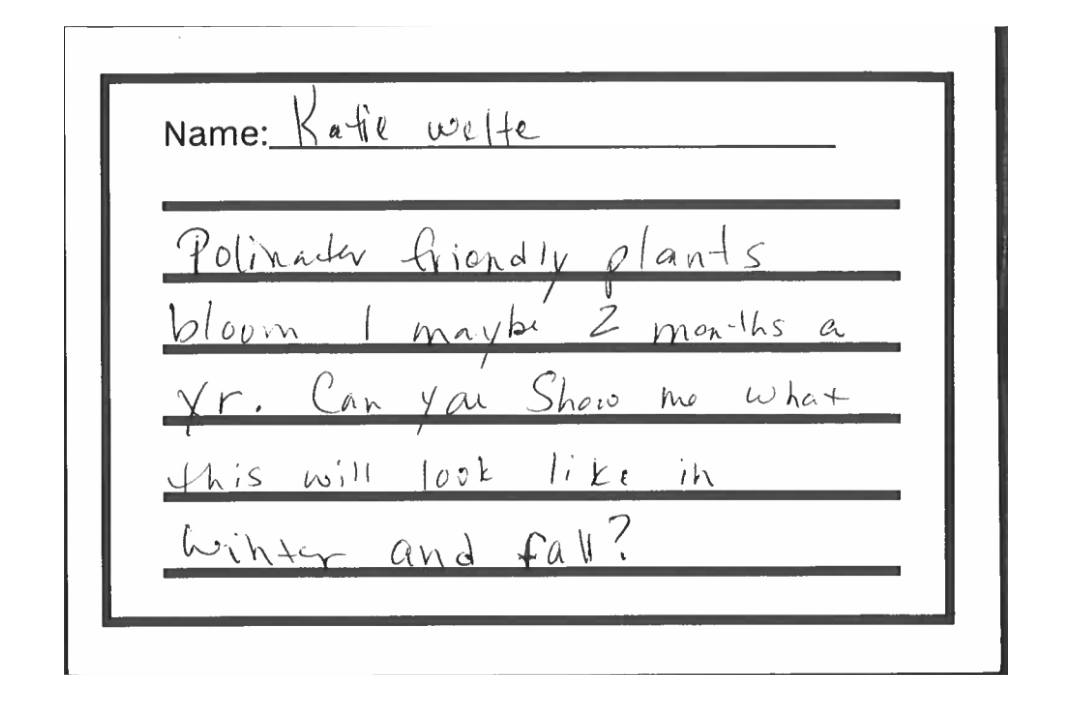 Name: Katie welte
Polinater friendly plants
bloom 1 maybe 2 months a
yr. Can you Show me what
this will look like in
Winter and fall?